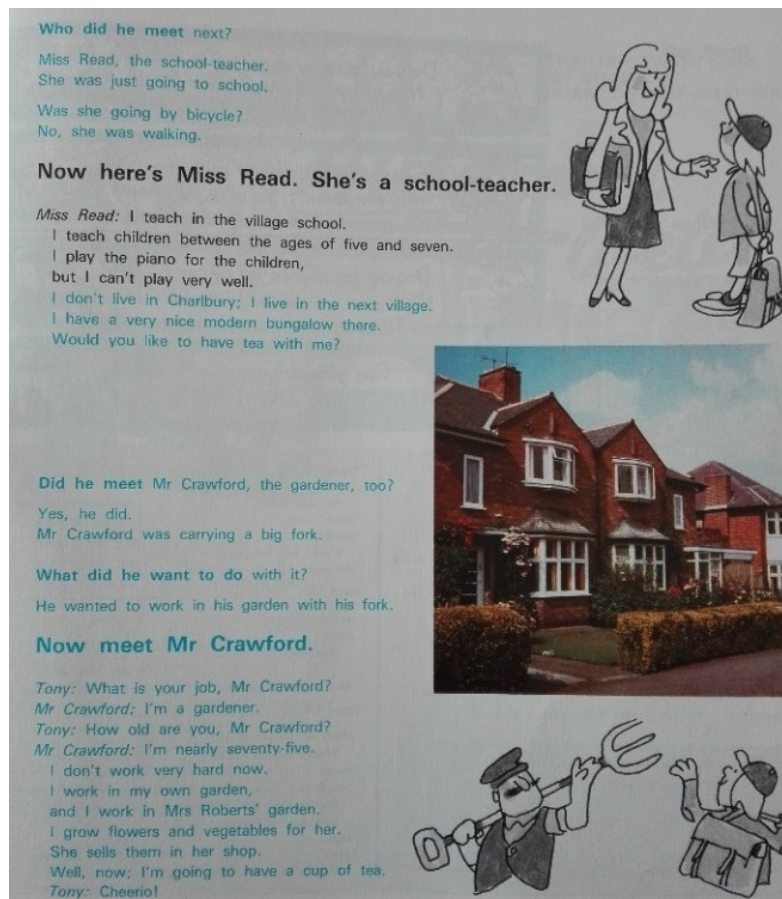 Who did he meet next?
Miss Read, the school-teacher.
She was just going to school.
Was she going by bicycle?
No, she was walking.
Now here's Miss Read. She's a school-teacher.
Miss Read: I teach in the village school.
I teach children between the ages of five and seven.
I play the piano for the children,
but I can't play very well.
I don't live in Charlbury; I live in the next village.
I have a very nice modern bungalow there.
Would you like to have tea with me?
Did he meet Mr Crawford, the gardener, too?
Yes, he did.
Mr Crawford was carrying a big fork.
What did he want to do with it?
He wanted to work in his garden with his fork.
Now meet Mr Crawford.
Tony: What is your job, Mr Crawford?
Mr Crawford: I'm a gardener.
Tony: How old are you, Mr Crawford?
Mr Crawford: I'm nearly seventy-five.
I don't work very hard now.
I work in my own garden,
and I work in Mrs Roberts' garden.
I grow flowers and vegetables for her.
She sells them in her shop.
Well, now; I'm going to have a cup of tea.
Tony: Cheerio!